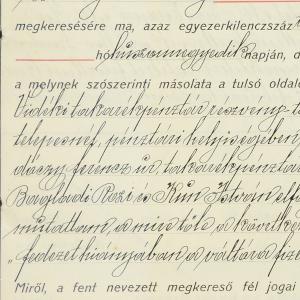 megkeresésére ma, azaz egyezerkilenczszáz
hó huszonnegyedik napján, d
a melynek szószerinti másolata a tulsó oldal
Vidéki takarékpénztár részvény-t
telepesnél, pénztári helyiségében
dáczy ferencz úr, takarékpénztá
Bargládi Rozi és Kun István elf
mutattam, a mire tőle a követke
„fedezet hiányjában a váltóra fize
Miről, a fent nevezett megkereső fél jogai